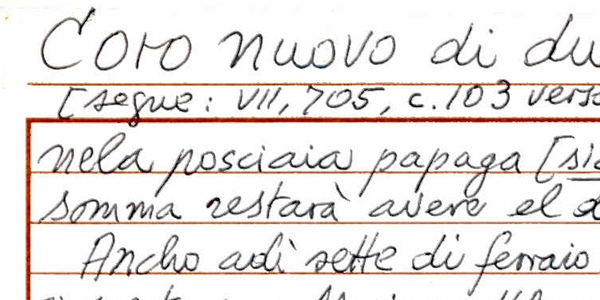 Coro nuovo di du
[segue: VII, 705, c. 103 verso
nela posciaia papaga [sic
somma restarà avere el d
Ancho adì sette di ferraio